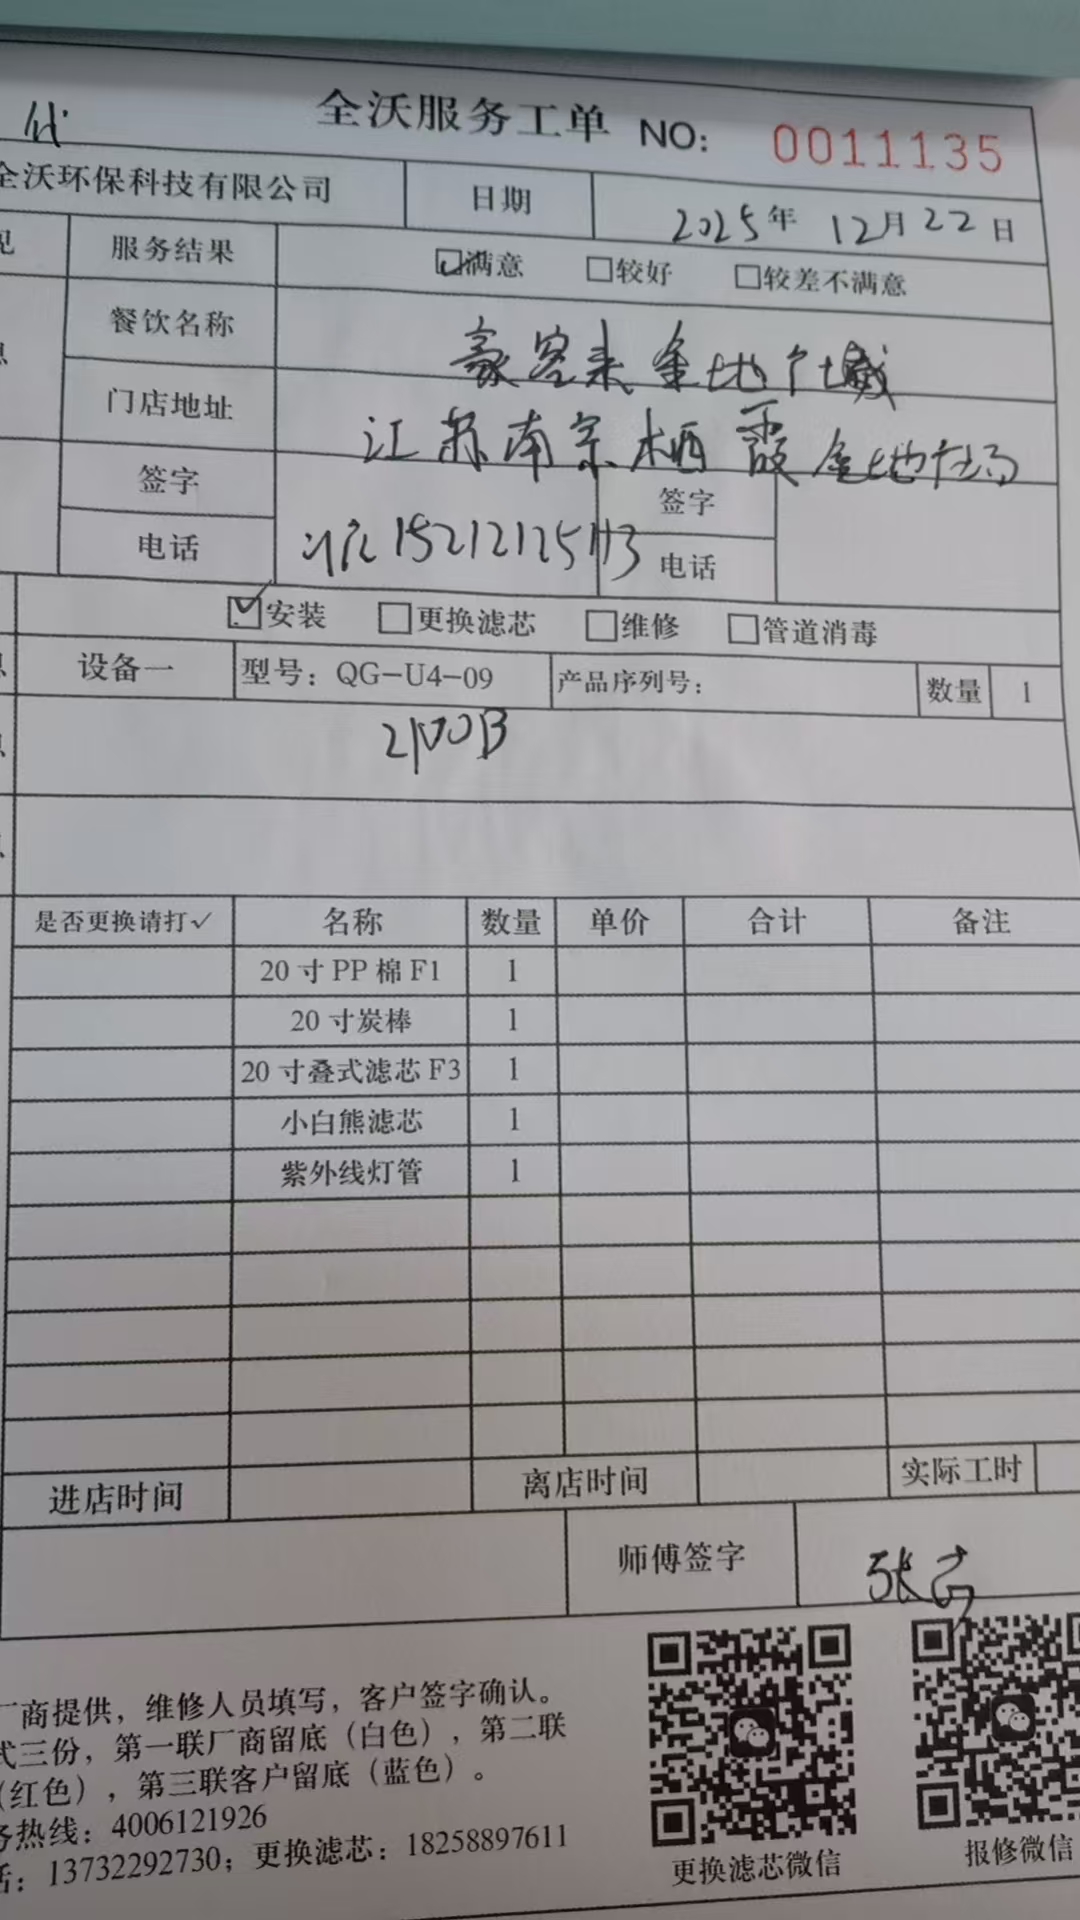 全沃服务工单 NO: 0011135
全沃环保科技有限公司 日期 2025年12月22日
服务结果 满意 较好 较差不满意
餐饮名称 豪客来金地广场
门店地址 江苏南京栖霞金地广场
签字 签字
电话 电话
安装 更换滤芯 维修 管道消毒
设备一 型号：QG-U4-09 产品序列号： 数量 1
是否更换请打✓ 名称 数量 单价 合计 备注
20寸PP棉F1 1
20寸炭棒 1
20寸叠式滤芯F3 1
小白熊滤芯 1
紫外线灯管 1
进店时间 离店时间 实际工时
师傅签字
厂商提供，维修人员填写，客户签字确认。
式三份，第一联厂商留底（白色），第二联
（红色），第三联客户留底（蓝色）。
务热线：4006121926
话：13732292730；更换滤芯：18258897611
更换滤芯微信 报修微信